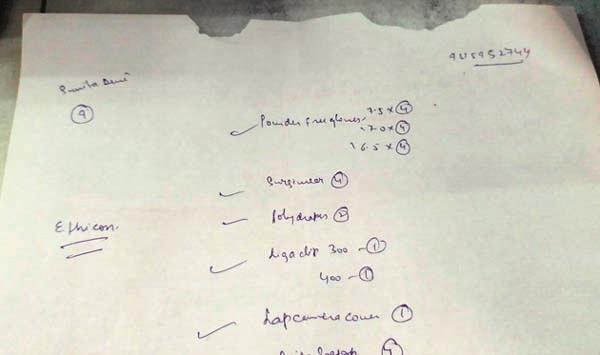 Sunita Devi
9
Powder free gloves 7.5 x 4
7.0 x 4
6.5 x 4
Surgiwear 4
Polydrapes 2
Ethicon
Ligaclip 300 - 1
400 - 1
Lap camera cover 1
4